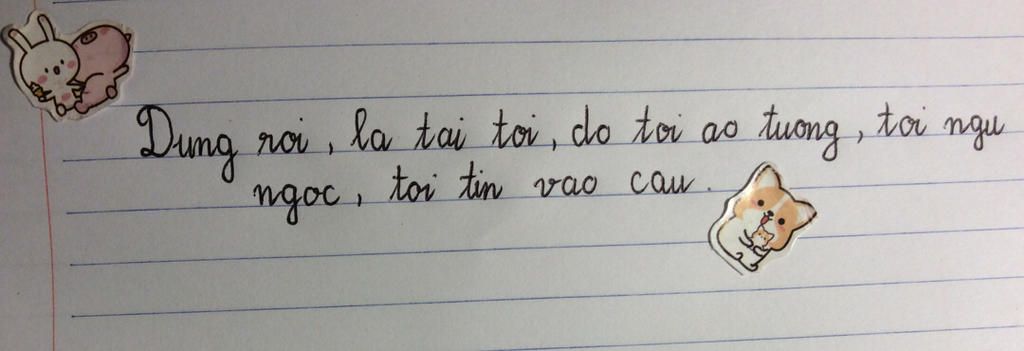 Dung roi, la tai toi, do toi ao tuong, toi ngu
ngoc, toi tin vao cau.